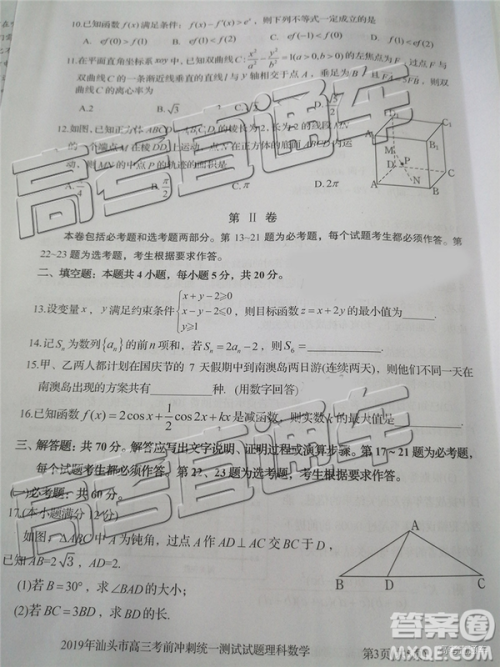 10.已知函数 f(x) 满足条件: f(x) − f'(x) > e^x, 则下列不等式一定成立的是
A. ef(0) > f(1) B. ef(0) < f(1) C. f(0) > ef(1) D. f(0) < ef(1)
11.在平面直角坐标系 xoy 中, 已知双曲线C: x²/a² − y²/b² = 1(a>0,b>0) 的左焦点为F, 过且与
双曲线C的一条渐近线垂直的直线
的离心率为
A.2 B.√3 C. D.
12.如图, 已知正方体 的棱长为2, 长为2的线段
的一个端点M在棱 上运动, 点N在正方体的底面
动, 则MN的中点P的轨迹的面积是
A. π/4 B. C. π D. 2π
A
B
C
D
M
P
N
A₁
B₁
C₁
第 II 卷
本卷包括必考题和选考题两部分。第 13~21 题为必考题，每个试题考生都必须作答。第
22~23 题为选考题，考生根据要求作答。
二、填空题：本题共 4 小题，每小题 5 分，共 20 分。
13.设变量 x，y 满足约束条件 { x+y−2≥0
x−y−2≤0
y≥1 ，则目标函数 z = x+2y 的最小值为 ____.
14.记 Sₙ 为数列{aₙ}的前 n 项和, 若 Sₙ = 2aₙ − 2, 则 S₆ = ____.
15.甲、乙两人都计划在国庆节的 7 天假期中到南澳岛两日游(连续两天), 则他们不同一天在
南澳岛出现的方案共有 ____ 种. (用数字回答)
16.已知函数 f(x) = 2cos x + 1/2 cos 2x + kx 是减函数, 则实数 k 的最大值是 ____.
三、解答题：共 70 分。解答应写出文字说明、证明过程或演算步骤。第 17~21 题为必考题，
每个试题考生都必须作答。第 22、23 题为选考题，考生根据要求作答。
(一)必考题：共 60 分。
17.(本小题满分 12 分)
如图, △ABC 中 A 为钝角, 过点 A 作 AD⊥AC 交 BC 于 D,
已知 AB=2√3, AD=2.
(1)若 B=30°, 求∠BAD 的大小;
(2)若 BC=3BD, 求 BD 的长.
A
B
D
C
2019年汕头市高三考前冲刺统一测试试题理科数学
第3页
高考直通车
高考直通车
高考直通车